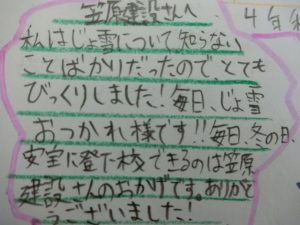 笠原建設さんへ
私はじょ雪について、知らない
ことばかりだったので、とても
びっくりしました!毎日、じょ雪
おつかれ様です!!毎日、冬の日、
安全に登下校できるのは笠原
建設さんのおかげです。ありがと
うございました!
4年